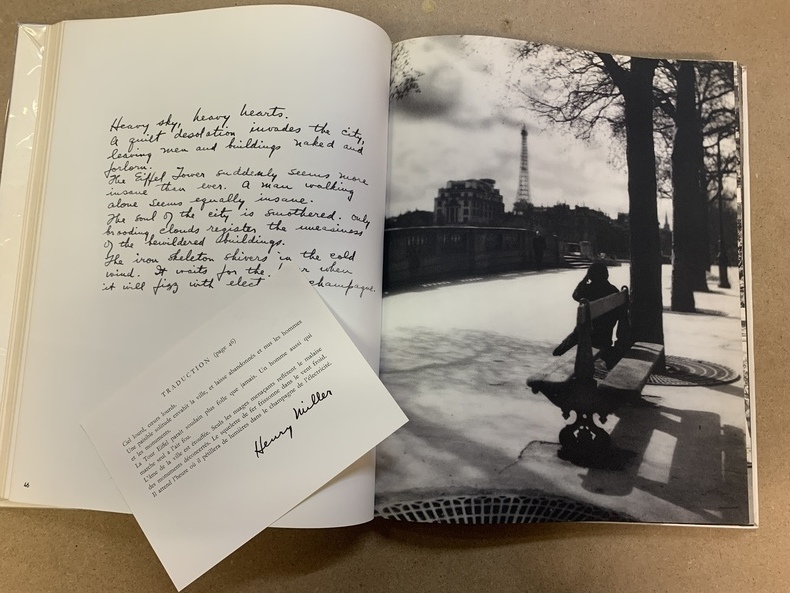 Heavy sky, heavy hearts.
A quiet desolation invades the city,
leaving men and buildings naked and
forlorn.
The Eiffel Tower suddenly seems more
insane than ever. A man walking
alone seems equally insane.
The soul of the city is smothered. Only
brooding clouds register the uneasiness
of the bewildered buildings.
The iron skeleton shivers in the cold
wind. It waits for the when
it will fizz with elect champagne.
46
TRADUCTION (page 46)
Ciel lourd, cœurs lourds.
Une paisible solitude envahit la ville, et laisse abandonnés et nus les hommes
et les monuments.
La Tour Eiffel paraît soudain plus folle que jamais. Un homme aussi qui
marche seul a l'air fou.
L'âme de la ville est étouffée. Seuls les nuages menaçants reflètent le malaise
des monuments déconcertés. Le squelette de fer frissonne dans le vent froid.
Il attend l'heure où il pétillera de lumières dans le champagne de l'électricité.
Henry Miller